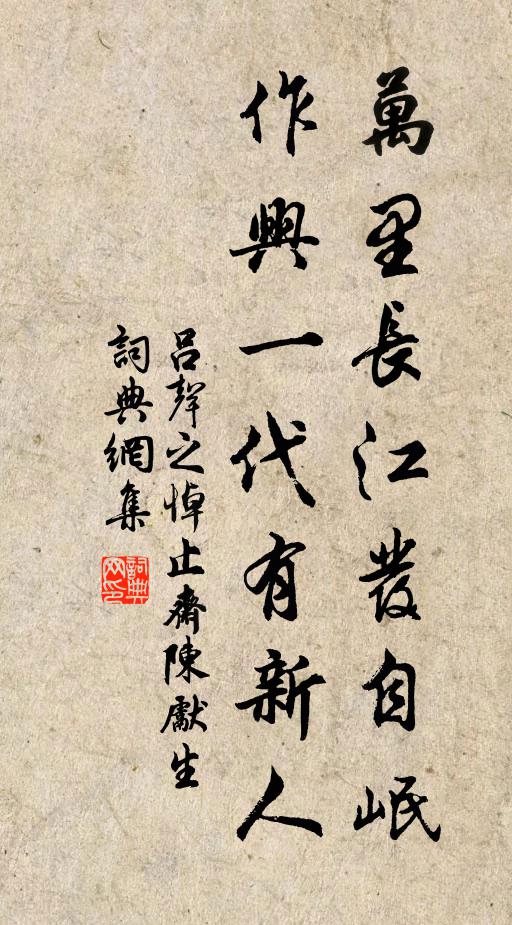 萬里長江發自岷
作興一代有新人
呂聲之悼止齋陳獻生
詞典網集
詞典网印